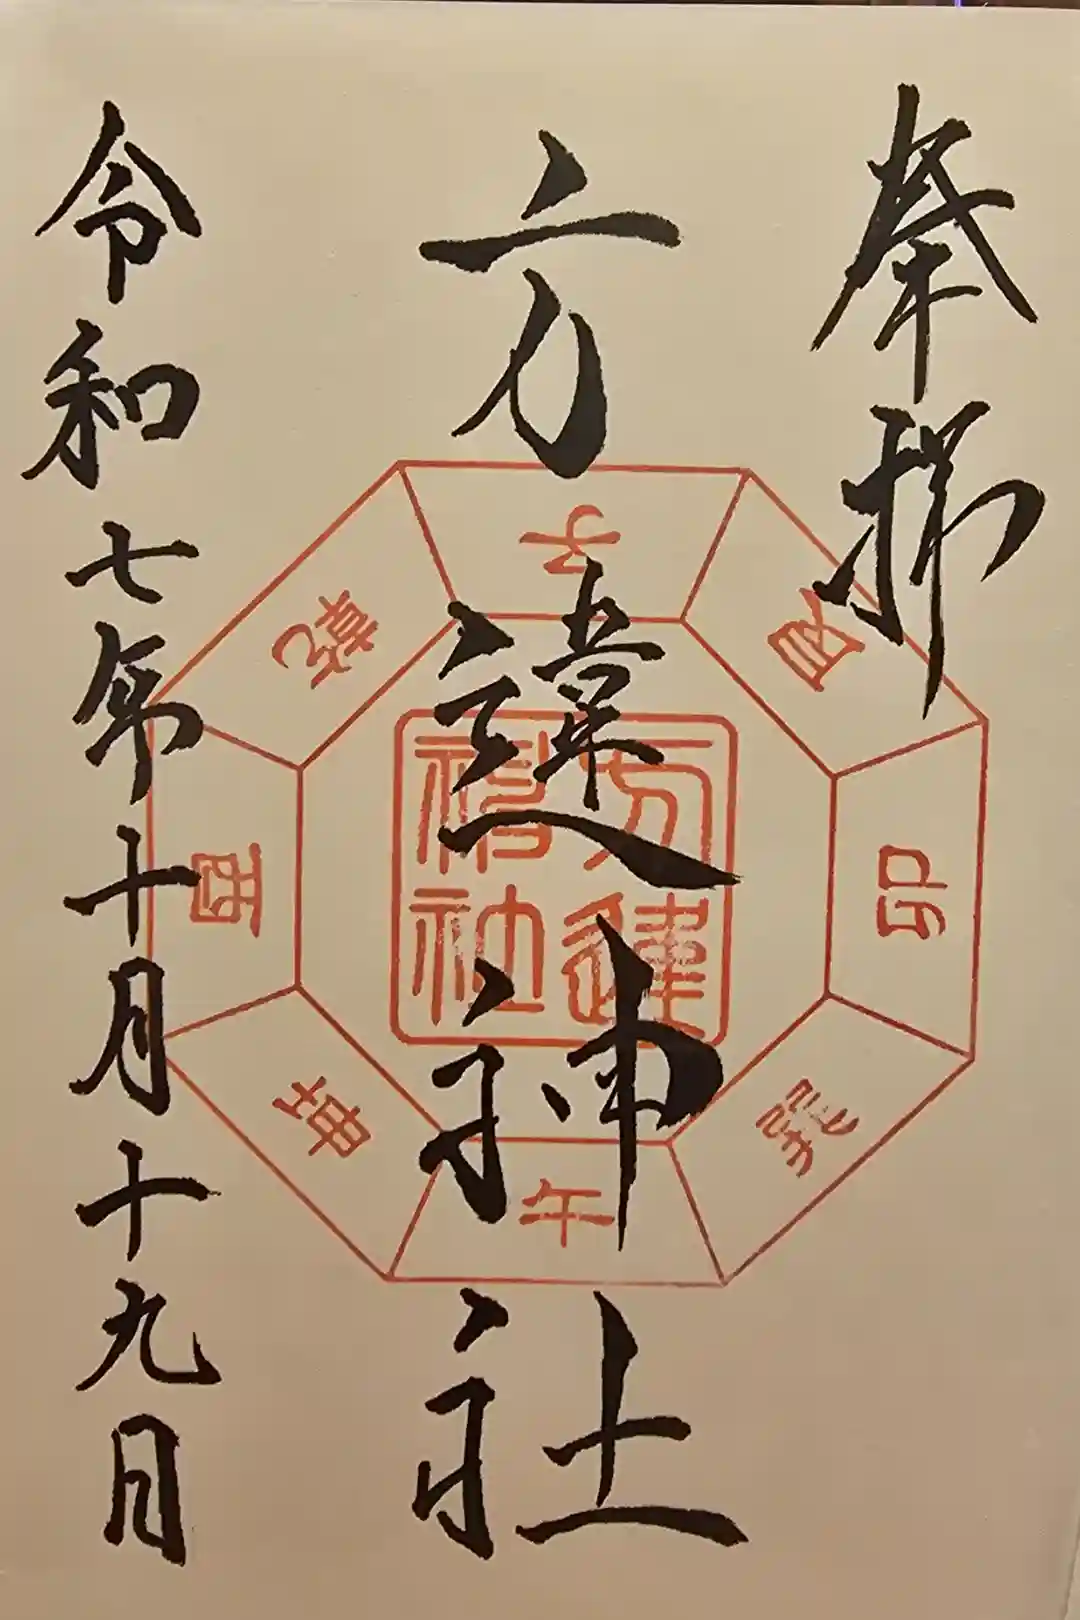 奉拝
方違神社
令和七年十月十九日
方違
神社
子
卯
巽
午
坤
酉
乾